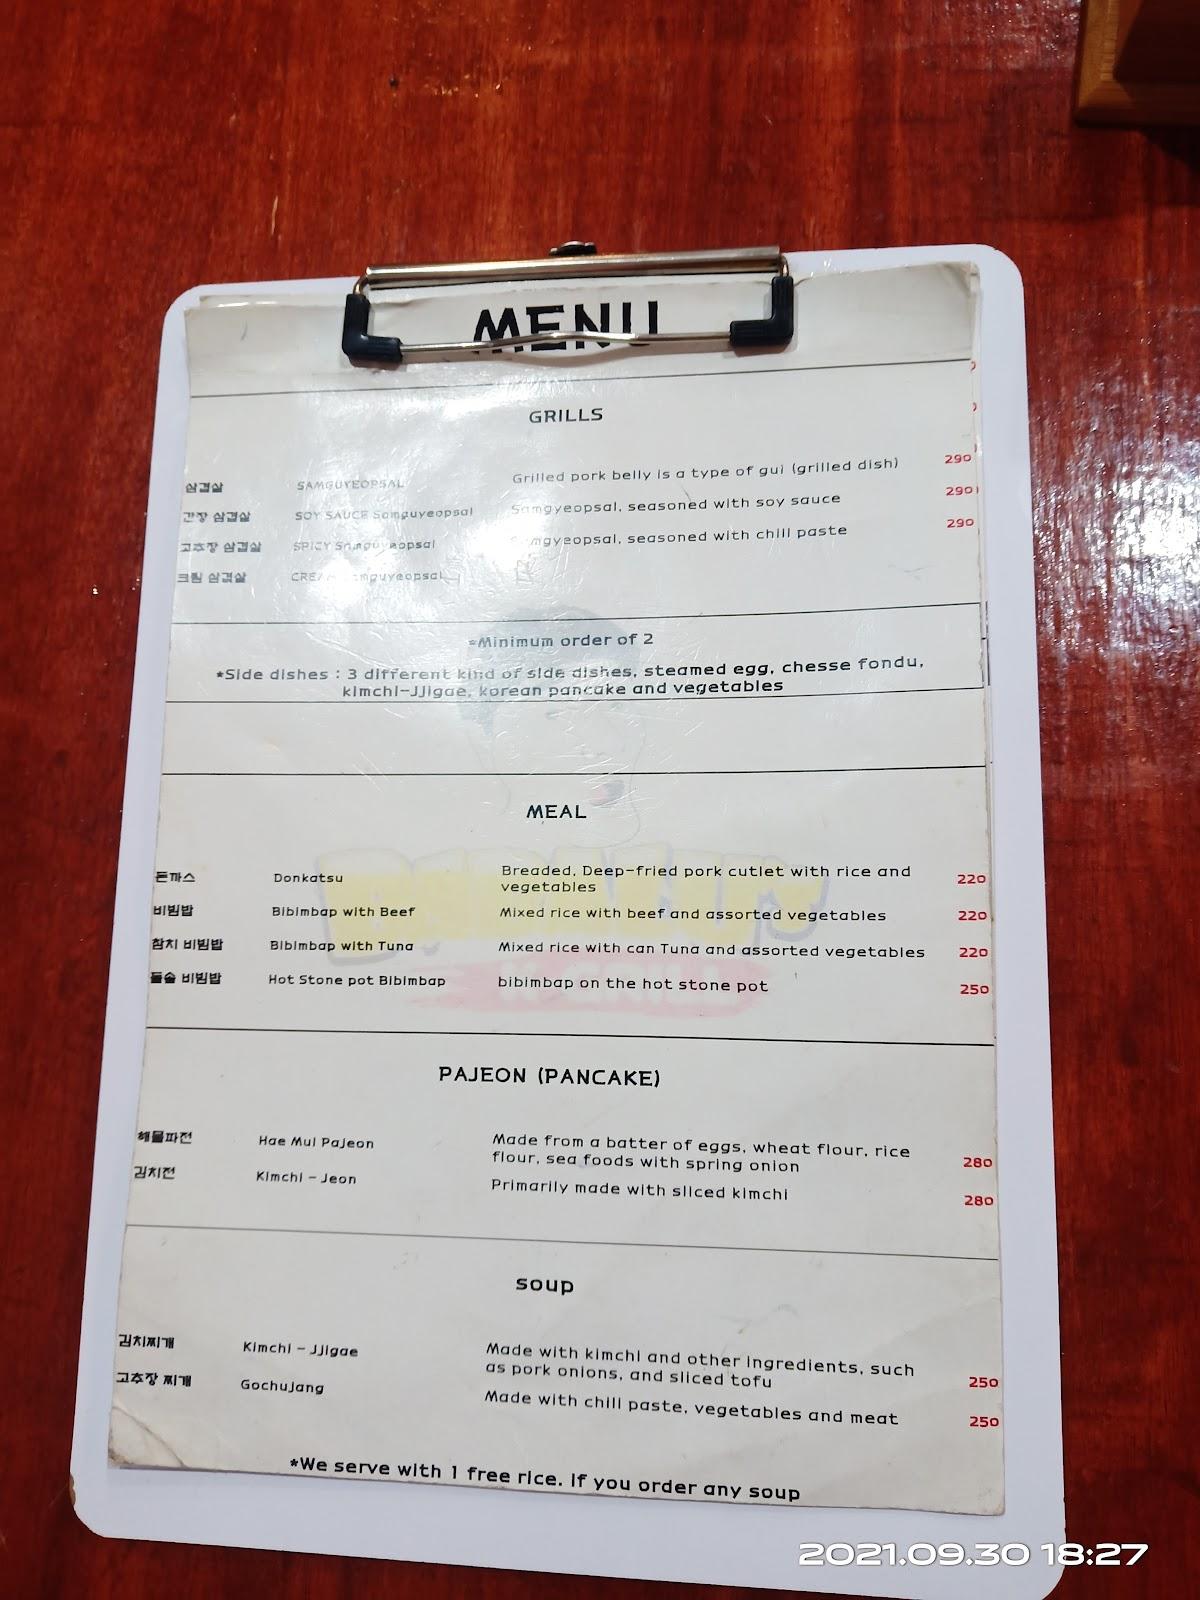 MENU
GRILLS
삼겹살 SAMGUYEOPSAL Grilled pork belly is a type of gui (grilled dish) 290
간장 삼겹살 SOY SAUCE Samguyeopsal Samgyeopsal, seasoned with soy sauce 290
고추장 삼겹살 SPICY Samguyeopsal Samgyeopsal, seasoned with chili paste 290
크림 삼겹살 CREAM Samguyeopsal
*Minimum order of 2
*Side dishes : 3 different kind of side dishes, steamed egg, chesse fondu,
kimchi-JJigae, korean pancake and vegetables
MEAL
돈까스 Donkatsu Breaded, Deep-fried pork cutlet with rice and
vegetables 220
비빔밥 Bibimbap with Beef Mixed rice with beef and assorted vegetables 220
참치 비빔밥 Bibimbap with Tuna Mixed rice with can Tuna and assorted vegetables 220
돌솥 비빔밥 Hot Stone pot Bibimbap bibimbap on the hot stone pot 250
PAJEON (PANCAKE)
해물파전 Hae Mul Pajeon Made from a batter of eggs, wheat flour, rice
flour, sea foods with spring onion 280
김치전 Kimchi - Jeon Primarily made with sliced kimchi 280
soup
김치찌개 Kimchi - JJigae Made with kimchi and other ingredients, such
as pork onions, and sliced tofu 250
고추장 찌개 Gochujang Made with chili paste, vegetables and meat 250
*We serve with 1 free rice. if you order any soup
2021.09.30 18:27